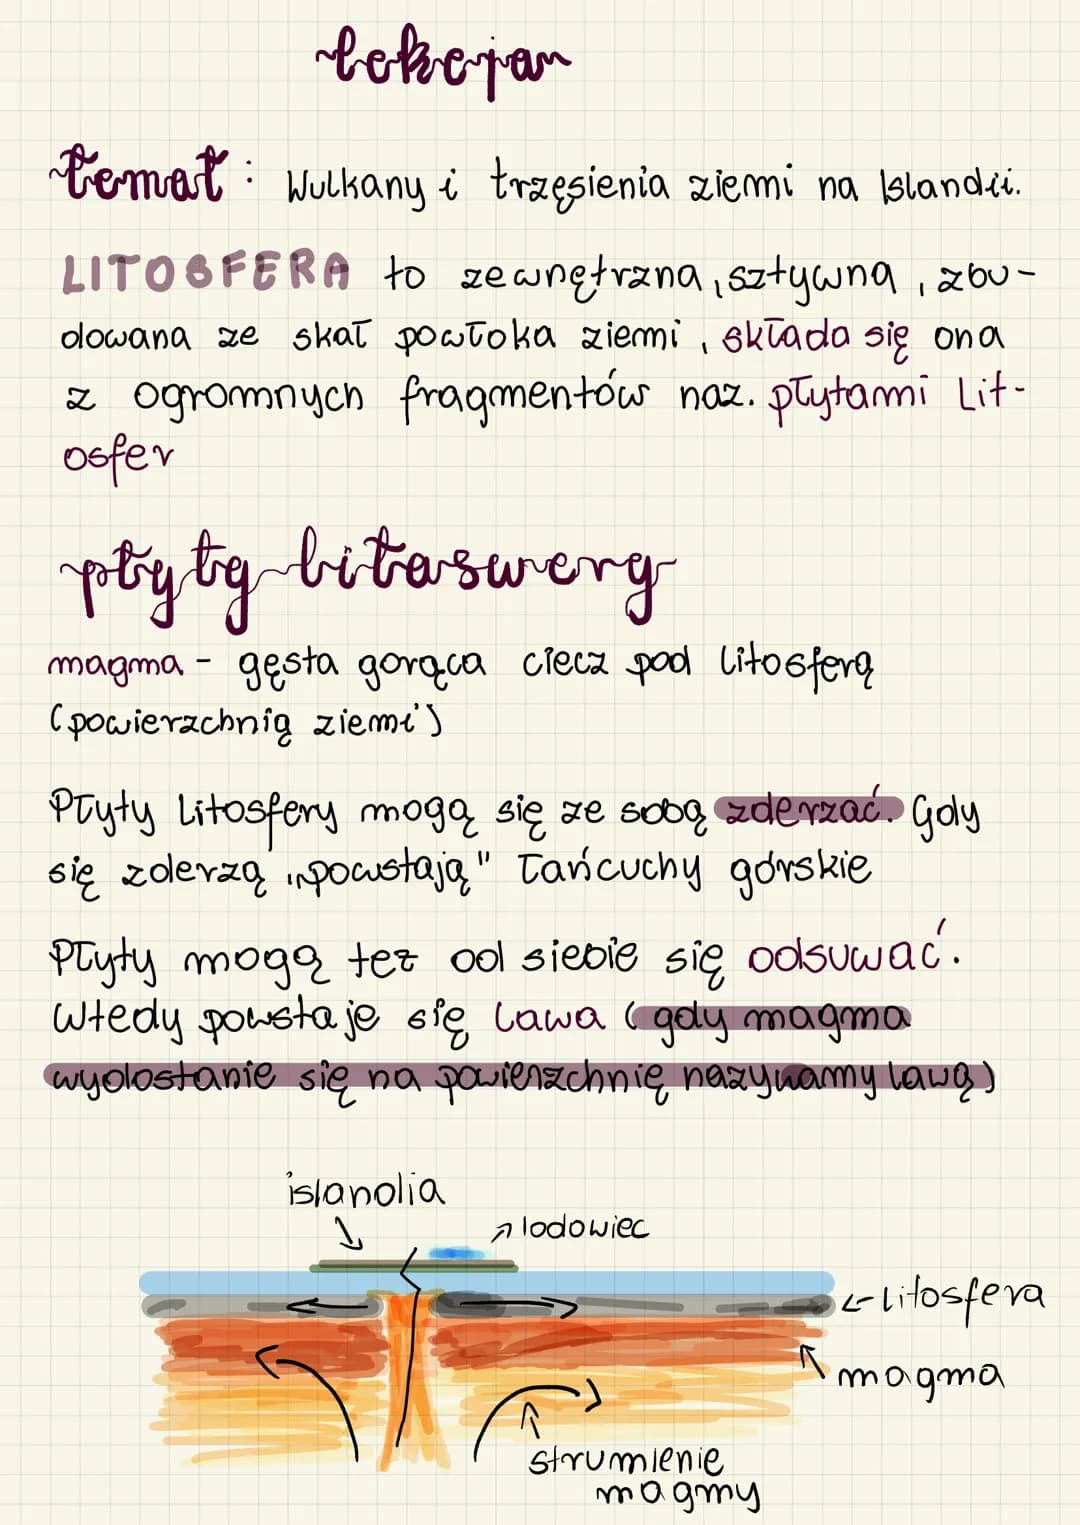 lekcja
temat: Wulkany i trzęsienia ziemi na Islandii.
LITOSFERA to zewnętrzna, sztywna, zbu-
dowana ze skał powłoka ziemi, składa się ona
z ogromnych fragmentów naz. płytami Lit-
osfer
płyty litoswery
magma - gęsta gorąca ciecz pod litosferą
(powierzchnią ziemi)
Płyty Litosfery mogą się ze sobą zderzać. Gdy
się zderzą "powstają" łańcuchy górskie
Płyty mogą też od siebie się odsuwać.
Wtedy powstaje się lawa (gdy magma
wydostanie się na powierzchnię nazywamy lawą)
islandia
lodowiec
litosfera
magma
strumienie
magmy